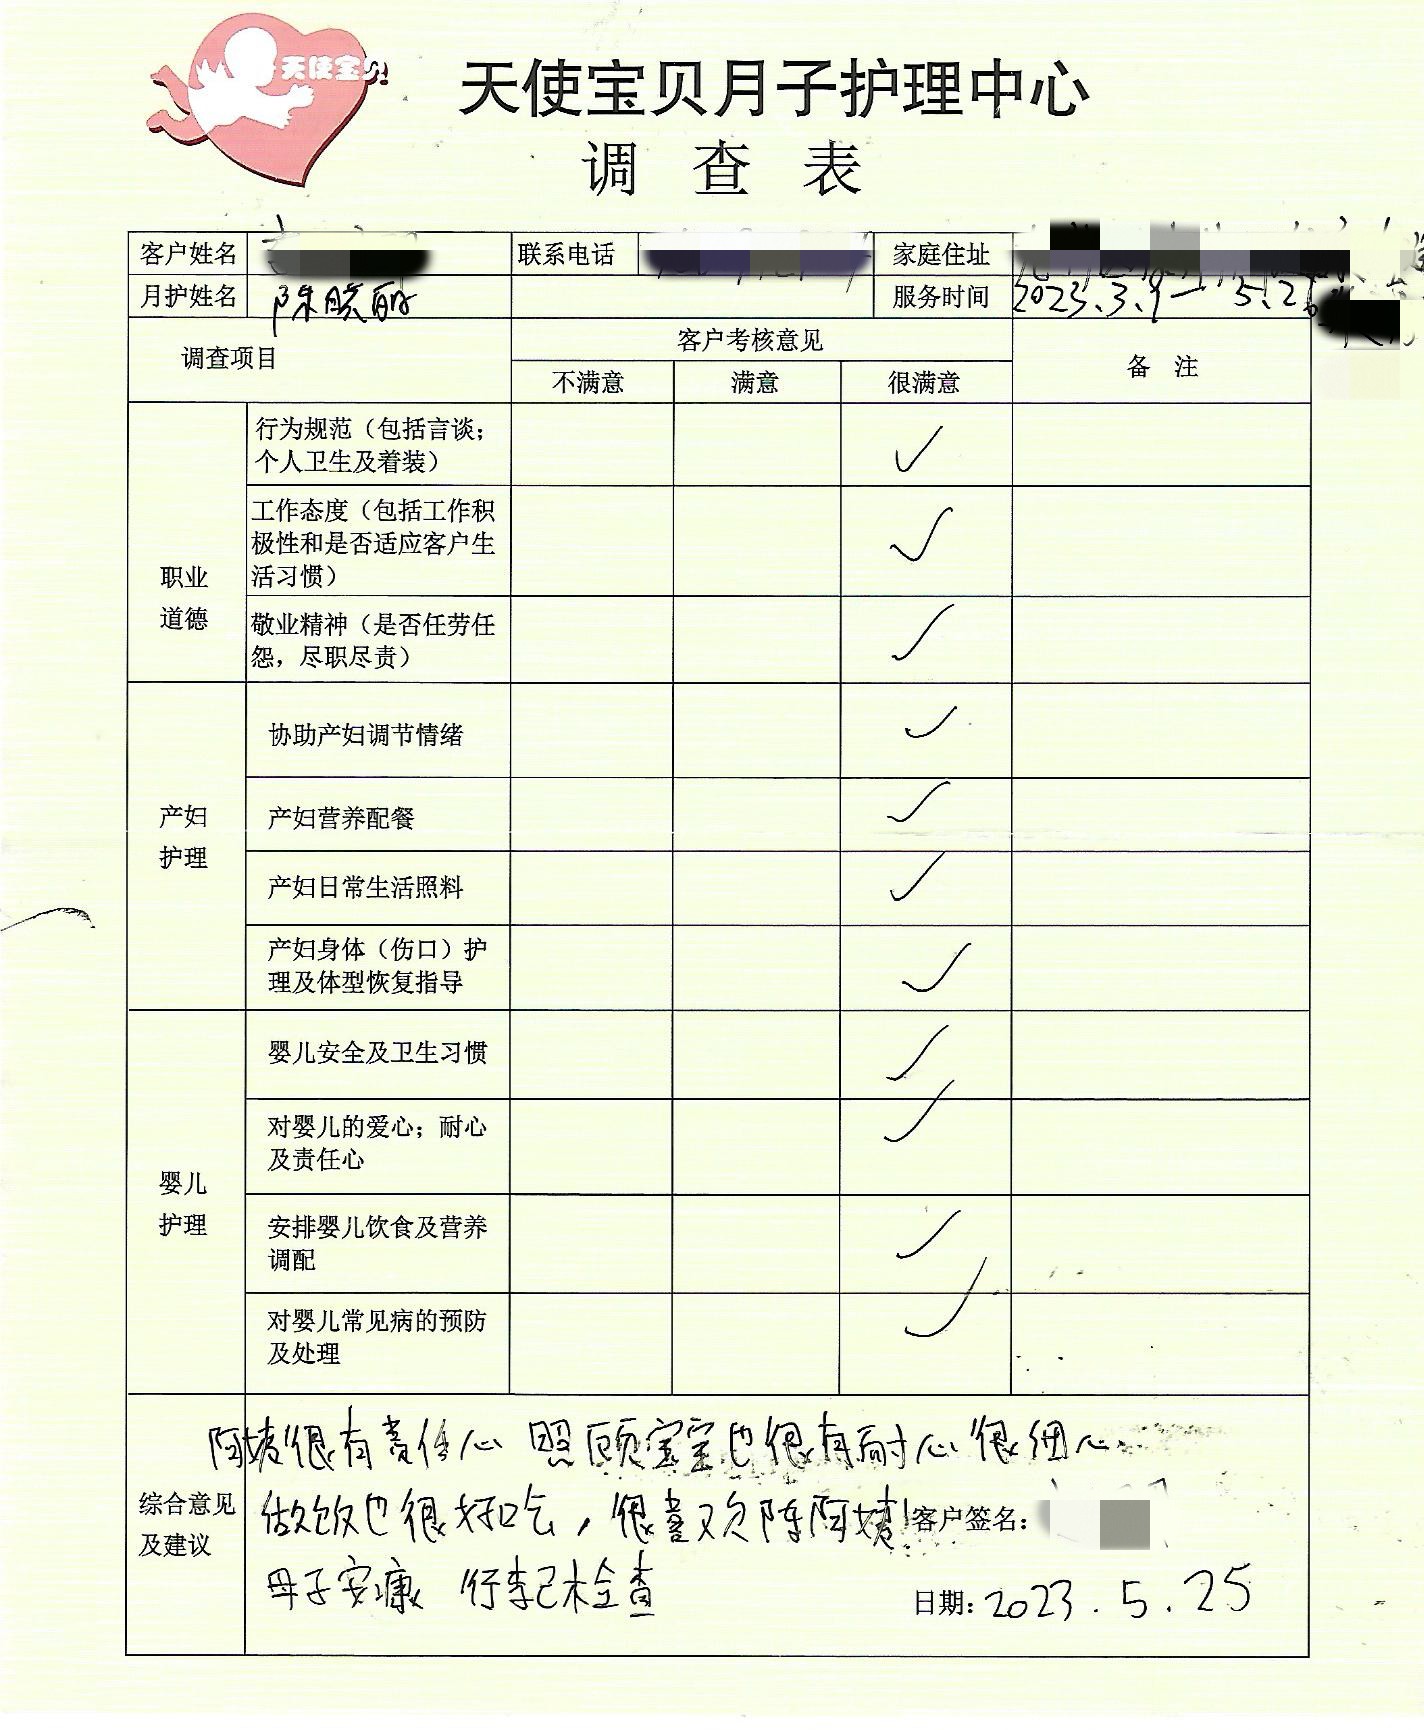 天使宝贝
天使宝贝月子护理中心
调查表
客户姓名 联系电话 家庭住址
月护姓名 陈晓丽 服务时间 2023.3.9—5.26
调查项目 客户考核意见 备注
不满意 满意 很满意
职业
道德
行为规范（包括言谈；
个人卫生及着装） ✓
工作态度（包括工作积
极性和是否适应客户生
活习惯） ✓
敬业精神（是否任劳任
怨，尽职尽责） ✓
产妇
护理
协助产妇调节情绪 ✓
产妇营养配餐 ✓
产妇日常生活照料 ✓
产妇身体（伤口）护
理及体型恢复指导 ✓
婴儿
护理
婴儿安全及卫生习惯 ✓
对婴儿的爱心；耐心
及责任心 ✓
安排婴儿饮食及营养
调配 ✓
对婴儿常见病的预防
及处理 ✓
综合意见
及建议
阿姨很有责任心 照顾宝宝也很有耐心很细心.
做饭也很好吃，很喜欢陈阿姨! 客户签名：
母子安康 行李已检查
日期：2023.5.25